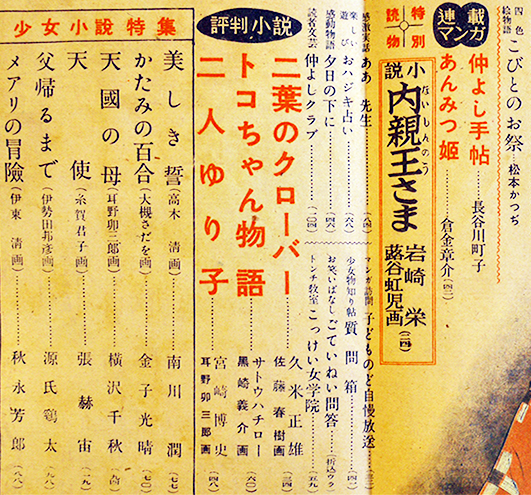 四色
絵物語
こびとのお祭……松本かつぢ
連載
マンガ
仲よし手帖……長谷川町子
あんみつ姫……倉金章介(四二)
特別
読物
小説
内親王さま
ないしんのう
岩崎栄
蕗谷虹児画
(二四)
感激実話
ああ先生……(八四)
楽しい
遊び
おハジキ占い……(六八)
感動物語
夕日の下に……(四六)
読者文芸
仲よしクラブ……(一〇四)
マンガ訪問
子どものど自慢放送
少女物知り帖
質問箱
お笑いばなし
ごていねい問答……(折込ウラ)
トンチ教室
こっけい女学院……(五九)
評判小説
二葉のクローバー
久米正雄
佐藤春樹画
(三四)
トコちゃん物語
サトウハチロー
黒崎義介画
(六〇)
二人ゆり子
宮崎博史
耳野卯三郎画
(四八)
少女小説特集
美しき誓(高木清画)……南川潤(七七)
かたみの百合(大槻さだを画)……金子光晴(七〇)
天國の母(耳野卯三郎画)……横沢千秋
天使(糸賀君子画)……張赫宙(一九)
父帰るまで(伊勢田邦彦画)……源氏鶏太(九八)
メアリの冒險(伊東清画)……秋永芳郎(八八)